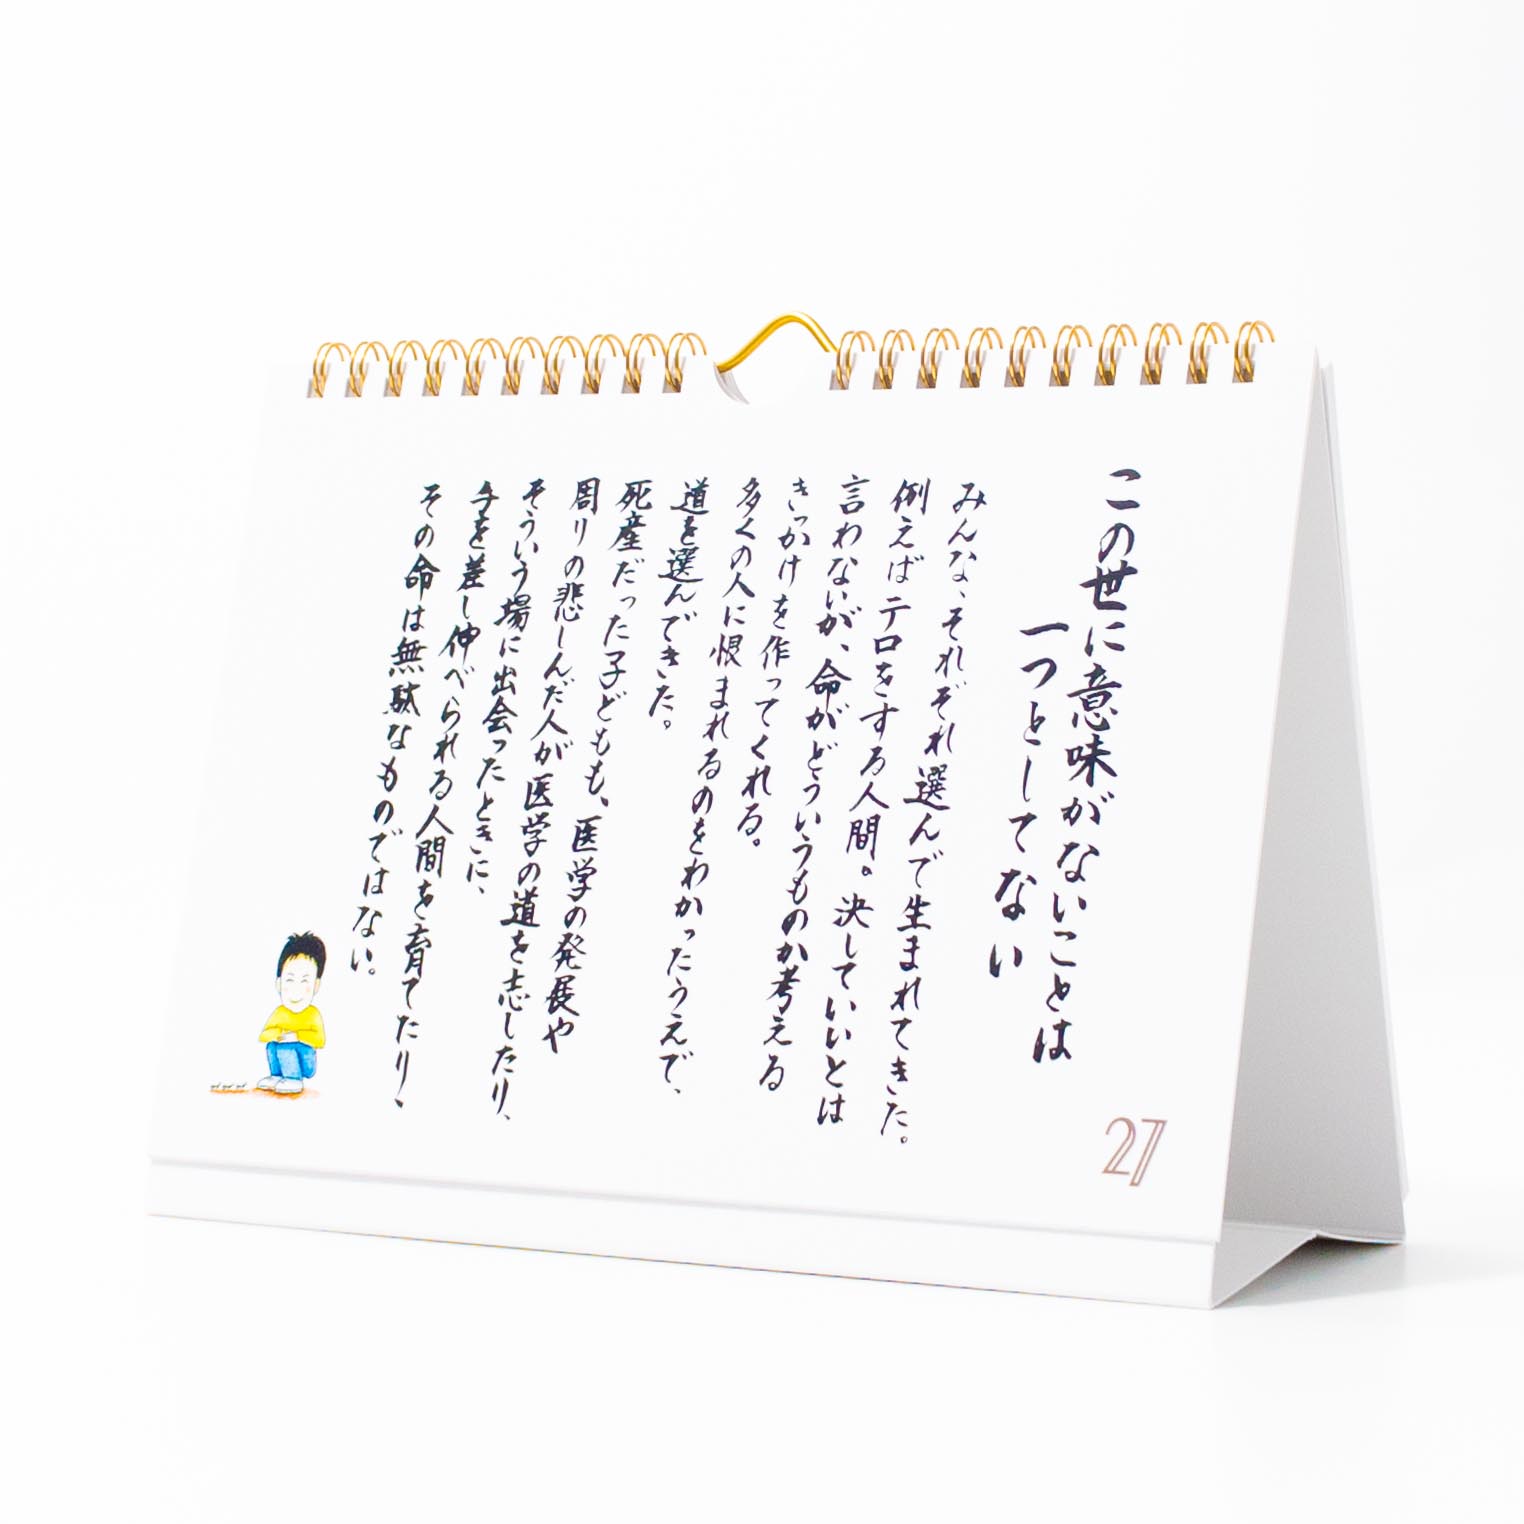 この世に意味がないことは
一つとしてない
みんな、それぞれ選んで生まれてきた。
例えばテロをする人間。決していいとは
言わないが、命がどういうものか考える
きっかけを作ってくれる。
多くの人に恨まれるのをわかったうえで、
道を選んできた。
死産だった子どもも、医学の発展や
周りの悲しんだ人が医学の道を志したり、
そういう場に出会ったときに、
手を差し伸べられる人間を育てたり、
その命は無駄なものではない。
27